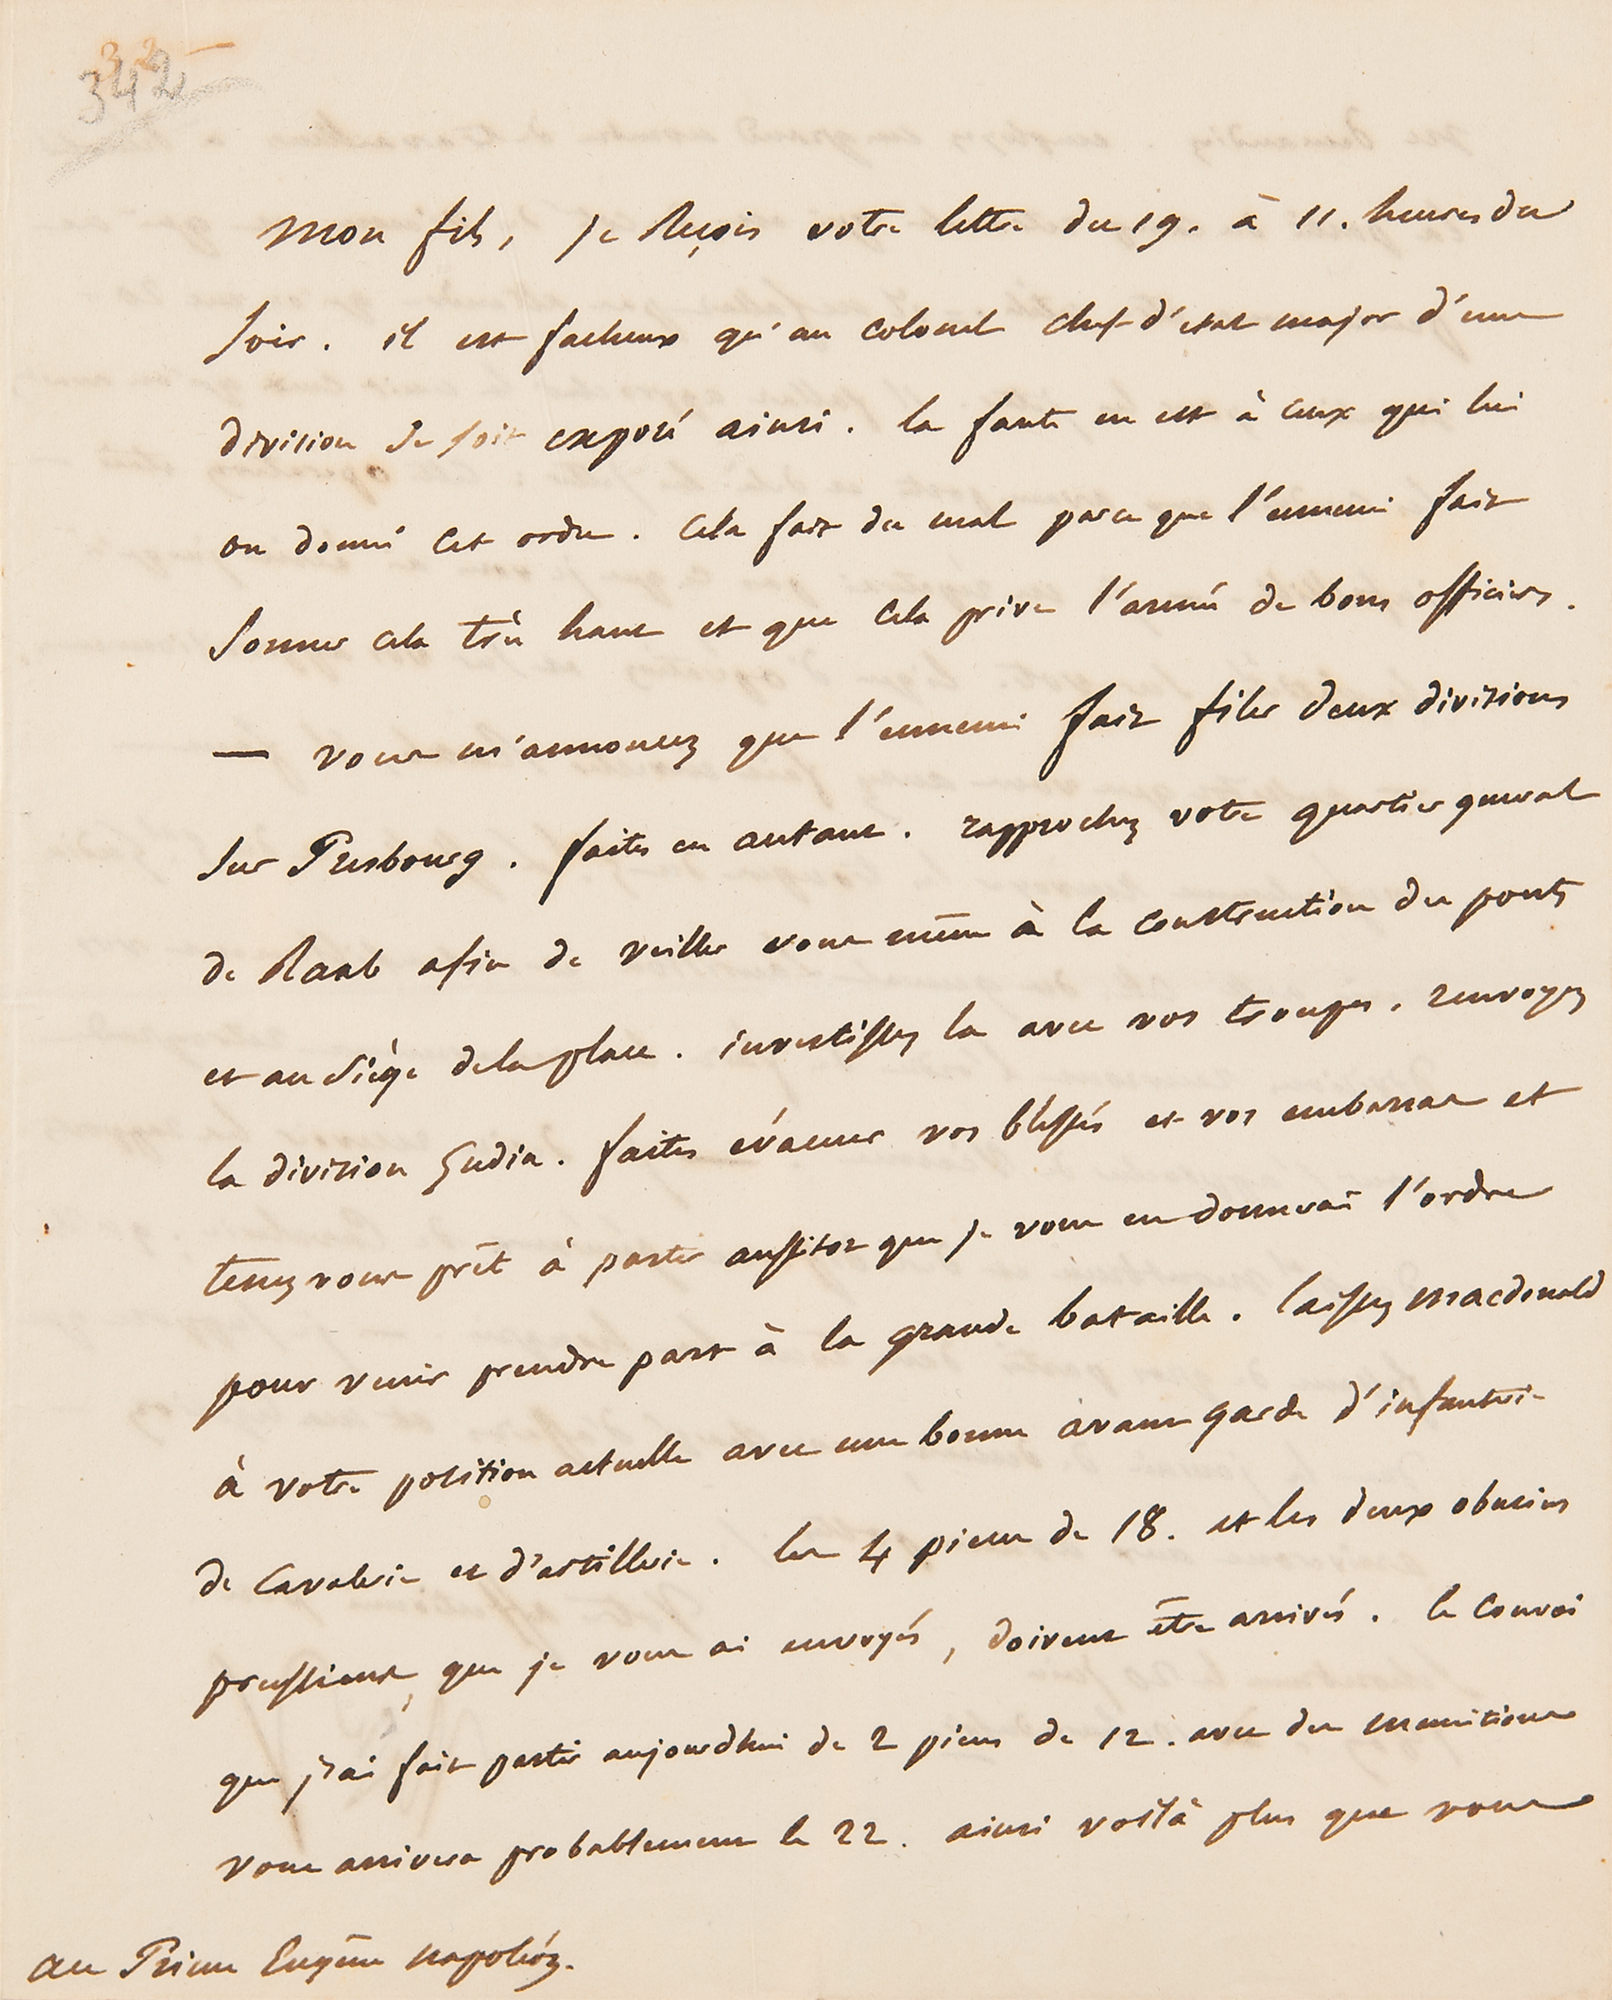 32
342
Mon fils, je reçois votre lettre du 19. à 11. heures du
soir. il est facheux qu'un colonel chef d'etat major d'une
division se soit exposé ainsi. la faute en est à ceux qui lui
on donné cet ordre. Cela fait du mal parce que l'ennemi fait
sonner cela très haut et que cela prive l'armée de bons officiers.
— vous m'annoncez que l'ennemi fait filer deux divisions
sur Presbourg. faites en autant. rapprochez votre quartier general
de Raab afin de veiller vous même à la construction des ponts
et au siège de la place. investissez la avec vos troupes. renvoyez
la division
faites évacuer vos blessés et vos embarras et
tenez vous prêt à partir aussitot que je vous en donnerai l'ordre
pour venir prendre part à la grande bataille. laissez macdonald
à votre position actuelle avec une bonne avant garde d'infanterie
de cavalerie et d'artillerie. les 4 pieces de 18. et les deux obusiers
prussiens, que je vous ai envoyés, doivent être arrivés. le convoi
que j'ai fait partir aujourdhui de 2 pieces de 12. avec des munitions
vous arrivera probablement le 22. ainsi voilà plus que vous
au Prince Eugène napoléon.